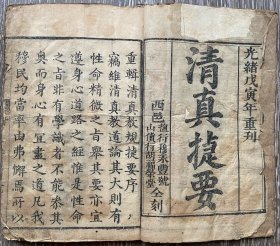 光緒戊寅年重刊
清真捷要
西邑
山貨行
仝刻
重輯清真教規捷要序
竊維清真教道論其大則有
性命精微之旨舉其要亦宜
遵身心道路之經惟是性命
之旨非有學識者不能參其
奧而身心有宜盡之道凡我
穆民均當率由弗懈焉所以